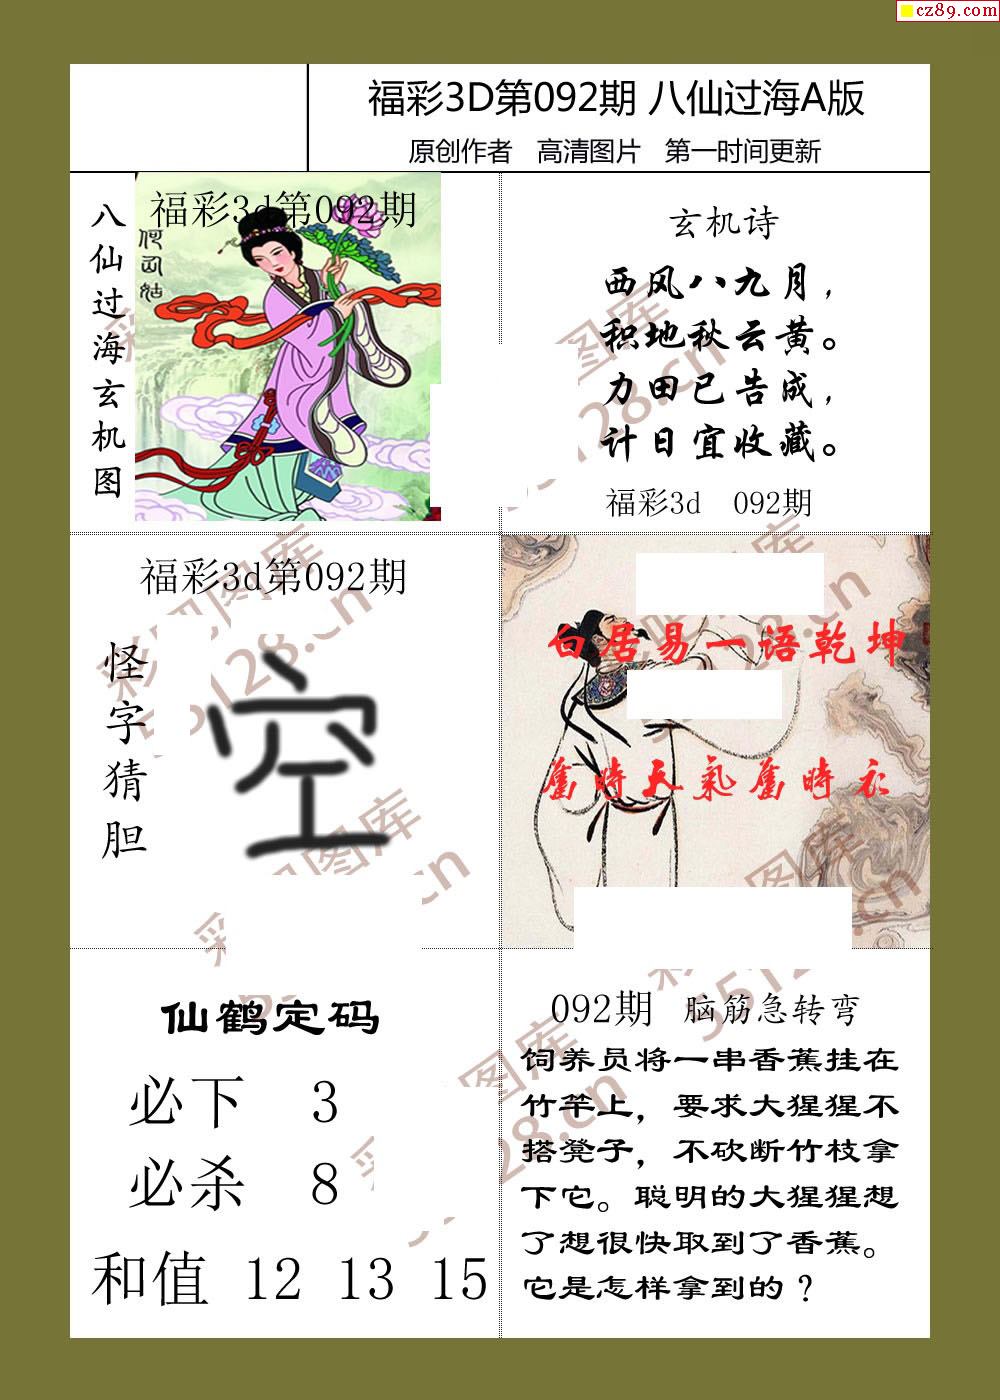 cz89.com
福彩3D第092期 八仙过海A版
原创作者 高清图片 第一时间更新
八仙过海玄机图
福彩3d第092期
何仙姑
玄机诗
西风八九月，
积地秋云黄。
力田已告成，
计日宜收藏。
福彩3d 092期
福彩3d第092期
怪字猜胆
空
白居易一语乾坤
舊時天氣舊時衣
仙鹤定码
必下 3
必杀 8
和值 12 13 15
092期 脑筋急转弯
饲养员将一串香蕉挂在
竹竿上，要求大猩猩不
搭凳子，不砍断竹枝拿
下它。聪明的大猩猩想
了想很快取到了香蕉。
它是怎样拿到的？